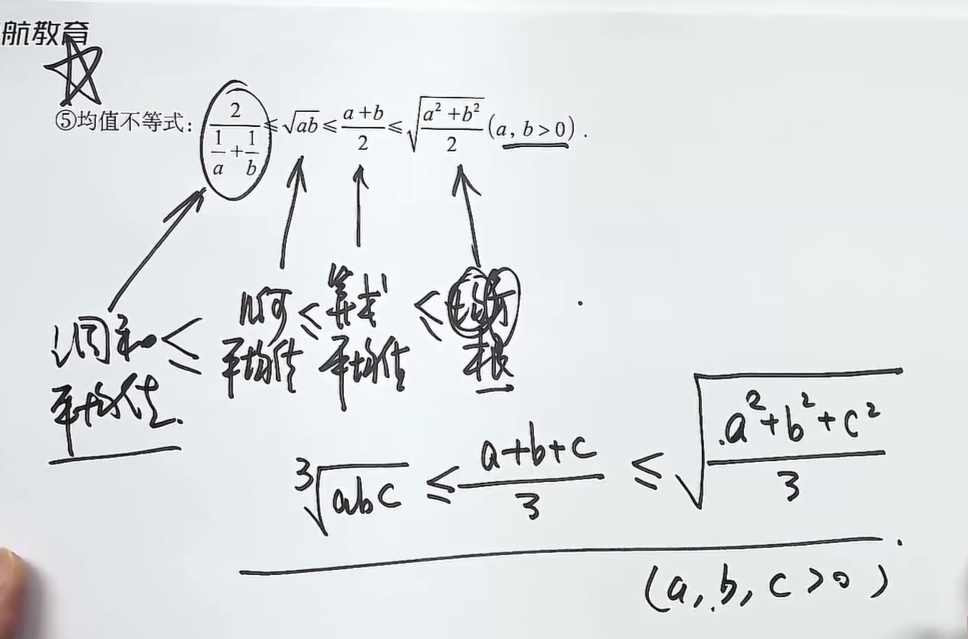 航教育
⑤均值不等式: 2/(1/a+1/b) ≤ √ab ≤ (a+b)/2 ≤ √((a²+b²)/2) (a, b>0).
调和 ≤ 几何 ≤ 算术 ≤ 均方
平均值 平均值 平均值 根
∛abc ≤ (a+b+c)/3 ≤ √((a²+b²+c²)/3)
(a, b, c >0)